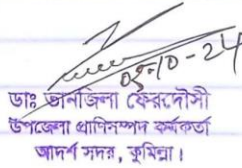 ০৭-১০-২৪
ডাঃ তানজিলা ফেরদৌসী
উপজেলা প্রাণিসম্পদ কর্মকর্তা
আদর্শ সদর, কুমিল্লা।